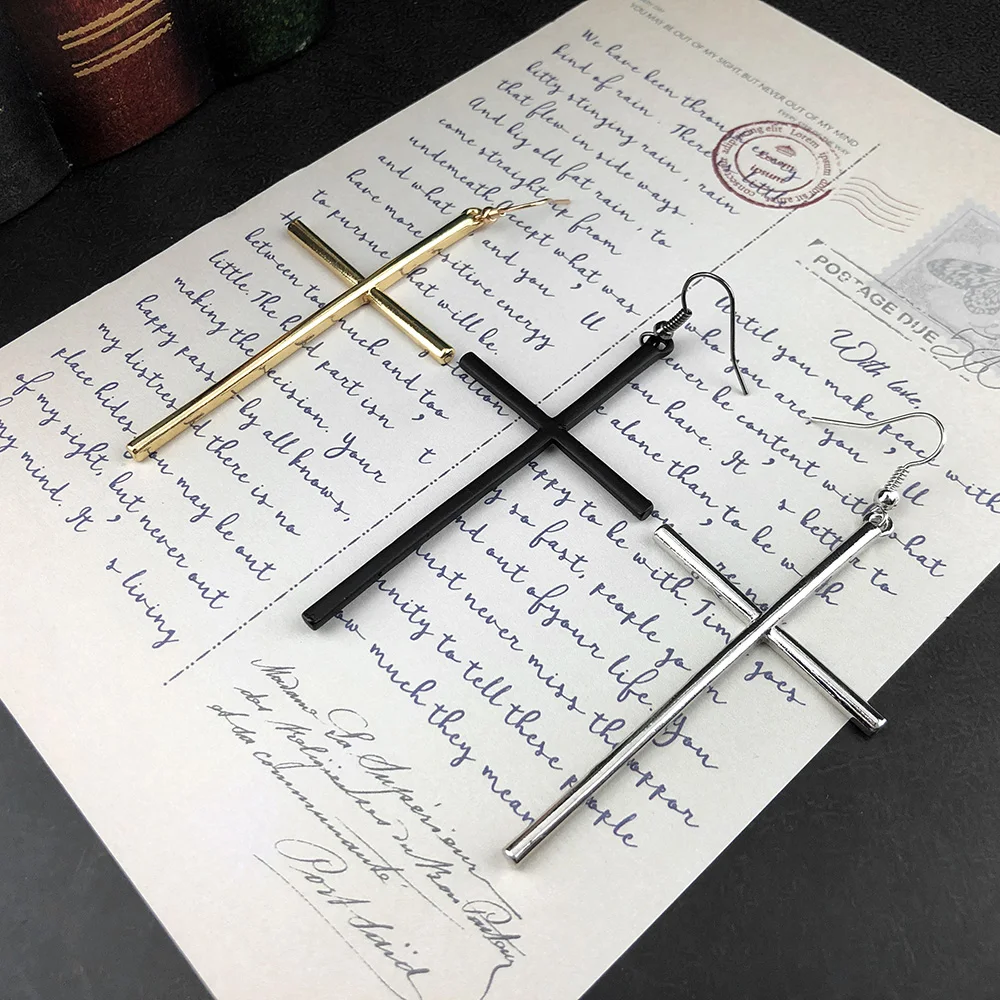 YOU MAY BE OUT OF MY SIGHT, BUT NEVER OUT OF MY MIND
We have been throu
kind of rain . There
bitty stinging rain , rain
that flew in side ways .
And big old fat rain , to
come straight up from
underneath. Except what was
and what and you ll
have more positive energy
to pursue that will be.
between too much and too
little. The hard part isn t
making the decision. Your
happy pass by all knows,
my distress and there is no
place hides. You may be out
of my sight, but never out
my mind. It s living
consectetur adipiscing elit Lorem ipsum dolor sit amet
Lorem
ipsum
POSTAGE DUE
With love,
Until you make peace with
who you are, you ll
never be content with what
you have. It s better to
be alone than to be with
happy to be with. Time goes
so fast, people go in
and out of your life. You
must never miss the oppor
unity to tell these people
how much they mean
Madame La Supérieure
des Religieuses du Bon Pasteur
et sa communauté
Port Saïd